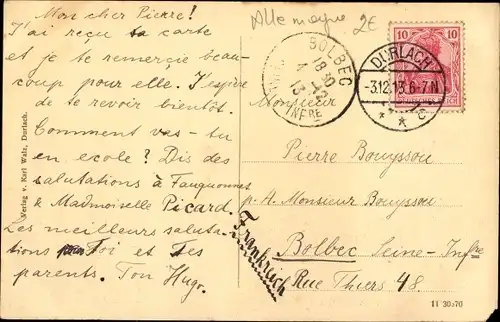 Mon cher Pierre!
J'ai reçu ta carte
et je te remercie beau-
coup pour elle. J'espère
de te revoir bientôt.
Comment vas-tu
en ecole? Dis des
salutations à Fauquonnet
& Madmoiselle Picard.
Les meilleurs saluta-
tions Toi et Tes
parents. Ton Hugo.
Verlag v. Karl Walz, Durlach.
Allemagne 2€
BOLBEC
18 30
4 -12
13
INFRE
DURLACH
-3.12.13.6-7N
* * * c
10 10
Monsieur
Pierre Bouyssou
p. A. Monsieur Bouyssou
Bolbec Seine-Infre
Rue Thiers 48.
Frankreich
11 30570